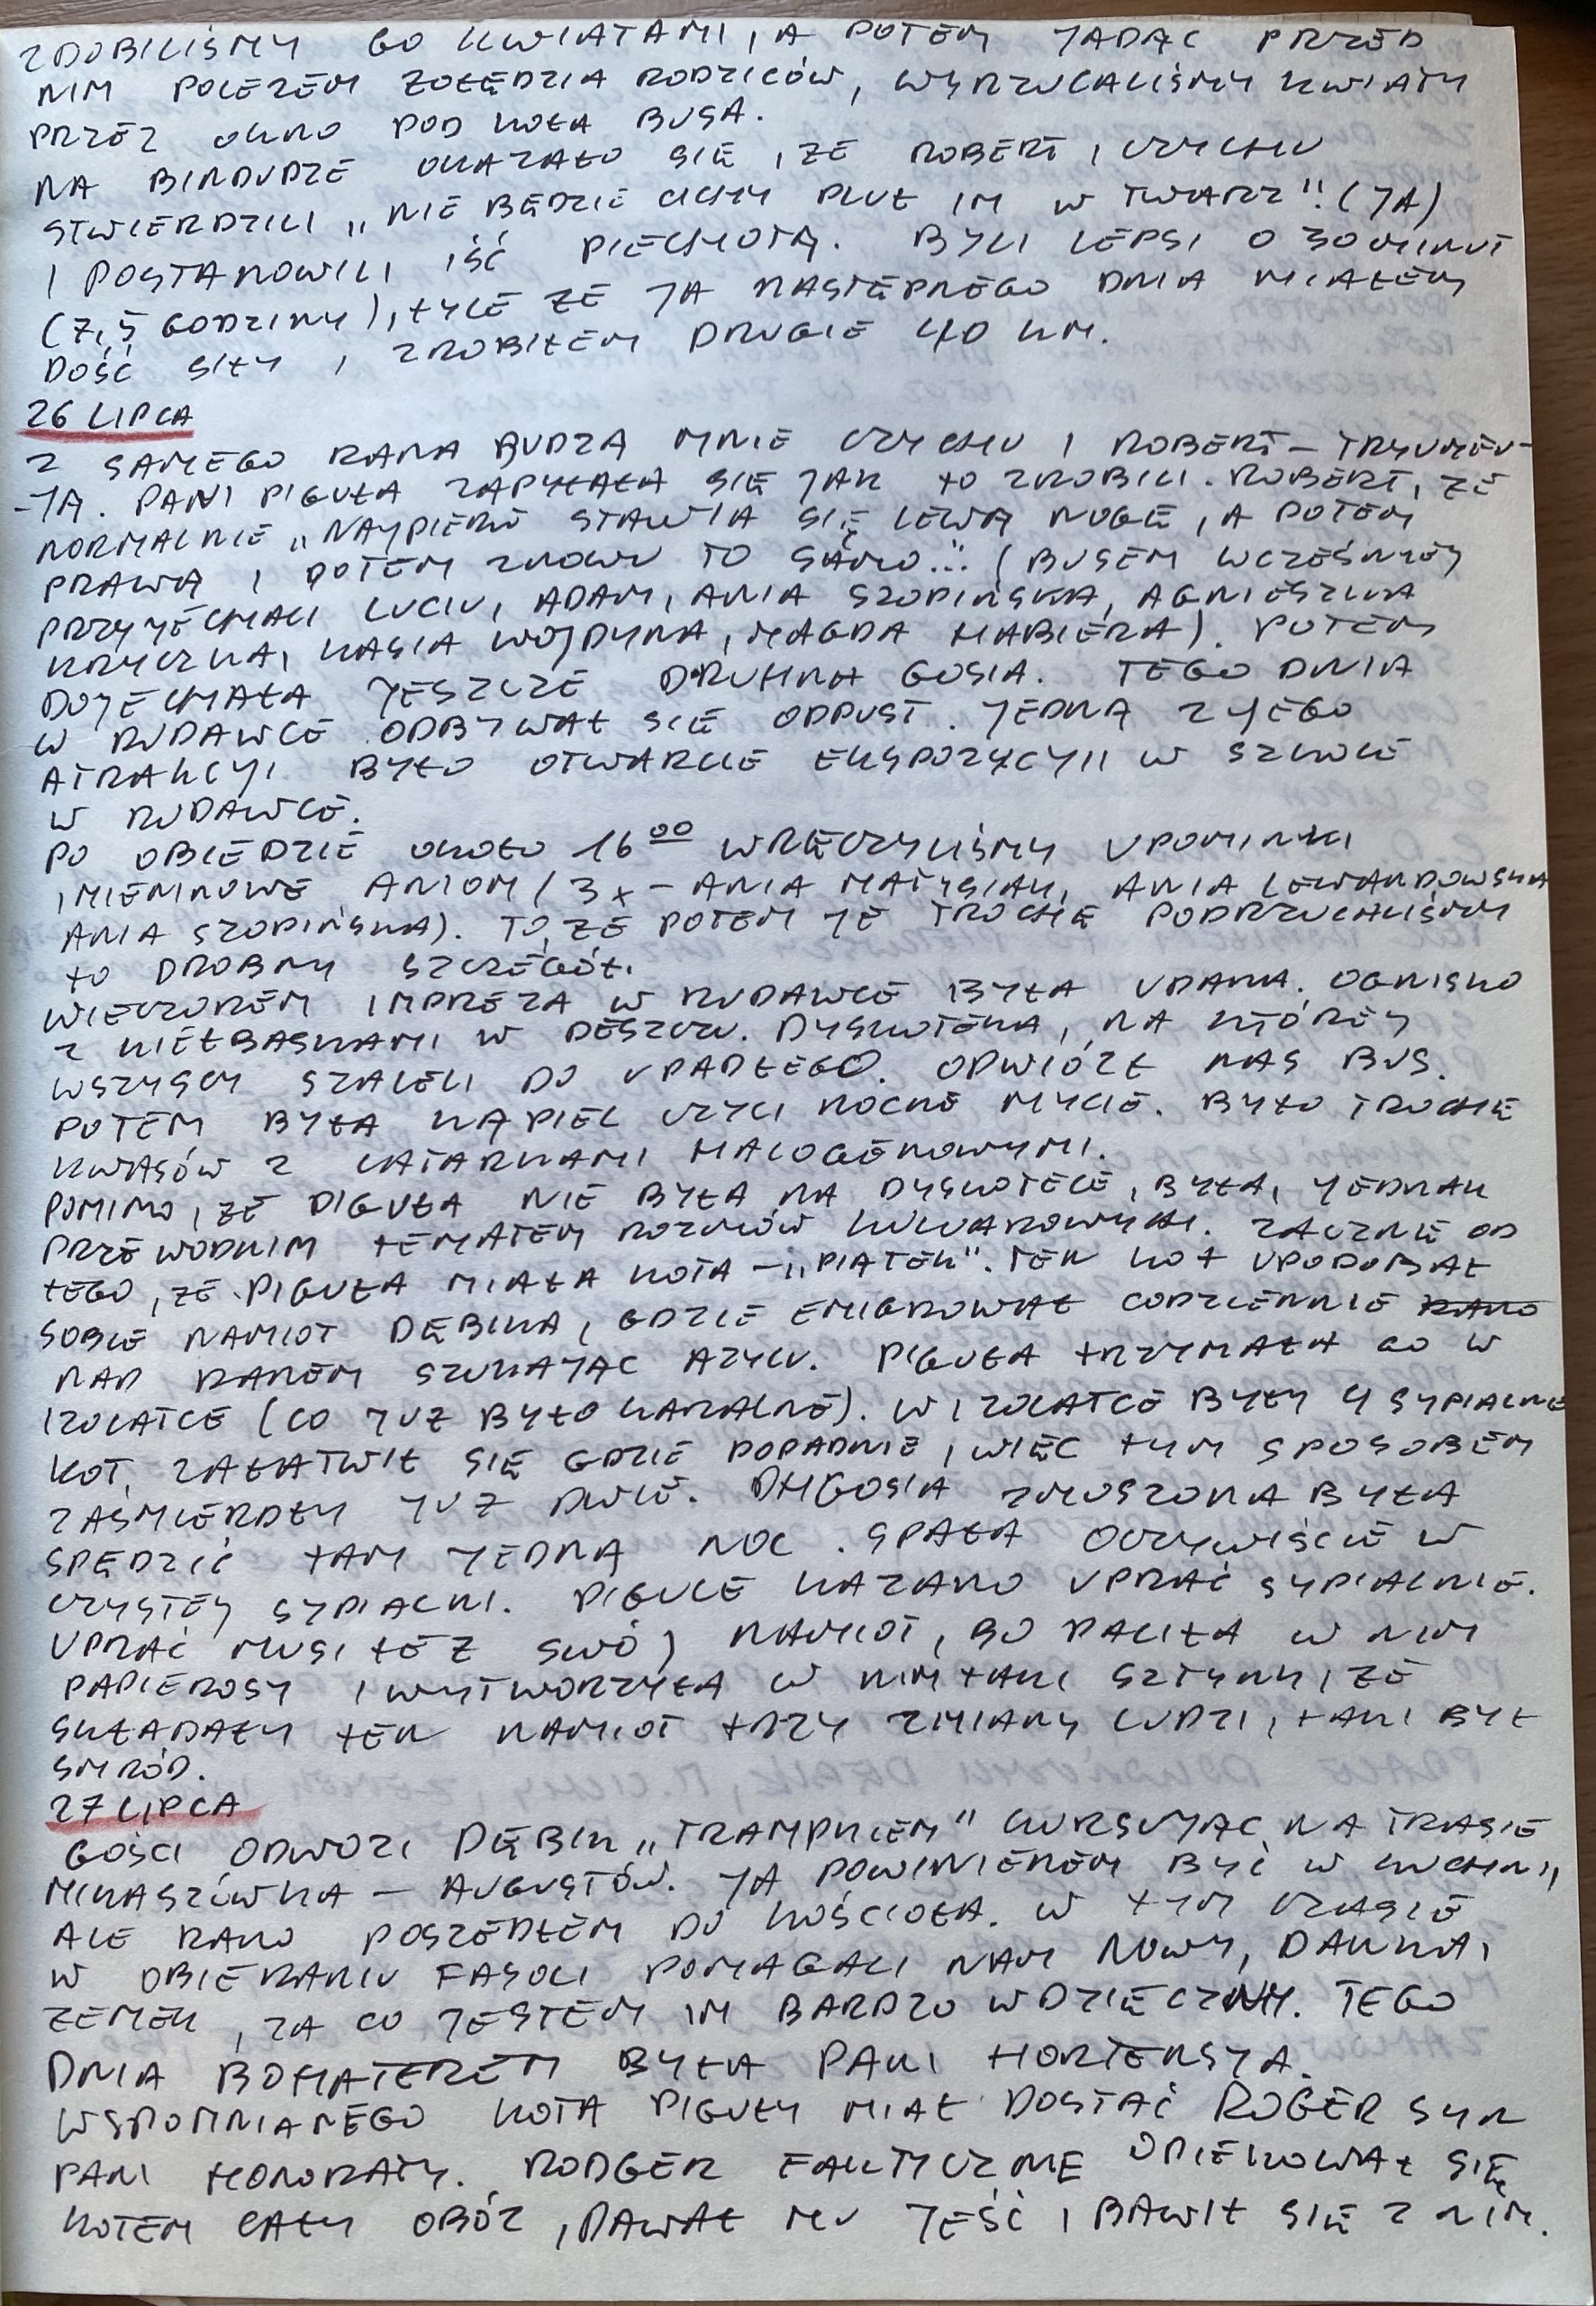 ZDOBILIŚMY GO KWIATAMI, A POTEM JADĄC PRZED
NIM POLEZEM ZOŁĘDZIA RODZICÓW, WYRZUCALIŚMY KWIATY
PRZEZ OKNO POD KOŁA BUSA.
NA BINDUDZE OKAZAŁO SIĘ, ŻE ROBERT I CZYCHU
STWIERDZILI „NIE BĘDZIE CICHY PLUŁ IM W TWARZ"! (JA)
I POSTANOWILI IŚĆ PIECHOTĄ. BYLI LEPSI O 30 MINUT
(7,5 GODZINY), TYLE ŻE JA NASTĘPNEGO DNIA MIAŁEM
DOŚĆ SIŁY I ZROBIŁEM DRUGIE 40 KM.
26 LIPCA
Z SAMEGO RANA BUDZĄ MNIE CZYCHU I ROBERT – TRYUMFU-
-JĄ. PANI PIGUŁA ZAPYTAŁA SIĘ JAK TO ZROBILI. ROBERT, ŻE
NORMALNIE „NAJPIERW STAWIA SIĘ LEWĄ NOGĘ, A POTEM
PRAWĄ I POTEM ZNOWU TO SAMO..." (BUSEM WCZEŚNIEJ
PRZYJECHALI LUCIU, ADAM, ANIA SZOPIŃSKA, AGNIESZKA
KRYCZKA, KASIA WOJDYNA, MAGDA HABIERA). POTEM
DOJECHAŁA JESZCZE DRUHNA GOSIA. TEGO DNIA
W RUDAWCE ODBYWAŁ SIĘ ODPUST. JEDNĄ Z JEGO
ATRAKCJI BYŁO OTWARCIE EKSPOZYCJI W SZKOLE
W RUDAWCE.
PO OBIEDZIE OKOŁO 16⁰⁰ WRĘCZYLIŚMY UPOMINKI
IMIENINOWE ANIOM (3x – ANIA MATYSIAK, ANIA LEWANDOWSKA
ANIA SZOPIŃSKA). TO, ŻE POTEM JE TROCHĘ PODRZUCALIŚMY
TO DROBNY SZCZEGÓŁ.
WIECZOREM IMPREZA W RUDAWCE BYŁA UDANA. OGNISKO
Z KIEŁBASKAMI W DESZCZU. DYSKOTEKA, NA KTÓREJ
WSZYSCY SZALELI DO UPADŁEGO. ODWIÓZŁ NAS BUS.
POTEM BYŁA KĄPIEL CZYLI NOCNE MYCIE. BYŁO TROCHĘ
KWASÓW Z LATARKAMI HALOGENOWYMI.
POMIMO, ŻE PIGUŁA NIE BYŁA NA DYSKOTECE, BYŁA, JEDNAK
PRZEWODNIM TEMATEM ROZMÓW KULUAROWYCH. ZACZNĘ OD
TEGO, ŻE PIGUŁA MIAŁA KOTA – „PIĄTEK". TEN KOT UPODOBAŁ
SOBIE NAMIOT DĘBIKA, GDZIE EMIGROWAŁ CODZIENNIE RANO
NAD RANEM SZUKAJĄC AZYLU. PIGUŁA TRZYMAŁA GO W
IZOLATCE (CO JUŻ BYŁO KARALNE). W IZOLATCE BYŁY 4 SYPIALNIE
KOT, ZAŁATWIŁ SIĘ GDZIE POPADNIE, WIĘC TYM SPOSOBEM
ZAŚMIERDŁY JUŻ DWIE. DH GOSIA ZMUSZONA BYŁA
SPĘDZIĆ TAM JEDNĄ NOC. SPAŁA OCZYWIŚCIE W
CZYSTEJ SYPIALNI. PIGULE KAZANO UPRAĆ SYPIALNIE.
UPRAĆ MUSI TEŻ SWÓJ NAMIOT, BO PALIŁA W NIM
PAPIEROSY I WYTWORZYŁA W NIM TAKI SZTYNK, ŻE
SKŁADAŁY TEN NAMIOT TRZY ZMIANY LUDZI, TAKI BYŁ
SMRÓD.
27 LIPCA
GOŚCI ODWOZI DĘBIK „TRAMPKIEM" KURSUJĄC NA TRASIE
MIKASZÓWKA – AUGUSTÓW. JA POWINIENEM BYĆ W KUCHNI,
ALE RANO POSZEDŁEM DO KOŚCIOŁA. W TYM CZASIE
W OBIERANIU FASOLI POMAGALI NAM NOWY, DANKA,
ZEMEK, ZA CO JESTEM IM BARDZO WDZIĘCZNY. TEGO
DNIA BOHATEREM BYŁA PANI HORTENSJA.
WSPOMNIANEGO KOTA PIGUŁY MIAŁ DOSTAĆ ROGER SYN
PANI HONORATY. RODGER FAKTYCZNIE OPIEKOWAŁ SIĘ
KOTEM CAŁY OBÓZ, DAWAŁ MU JEŚĆ I BAWIŁ SIĘ Z NIM.